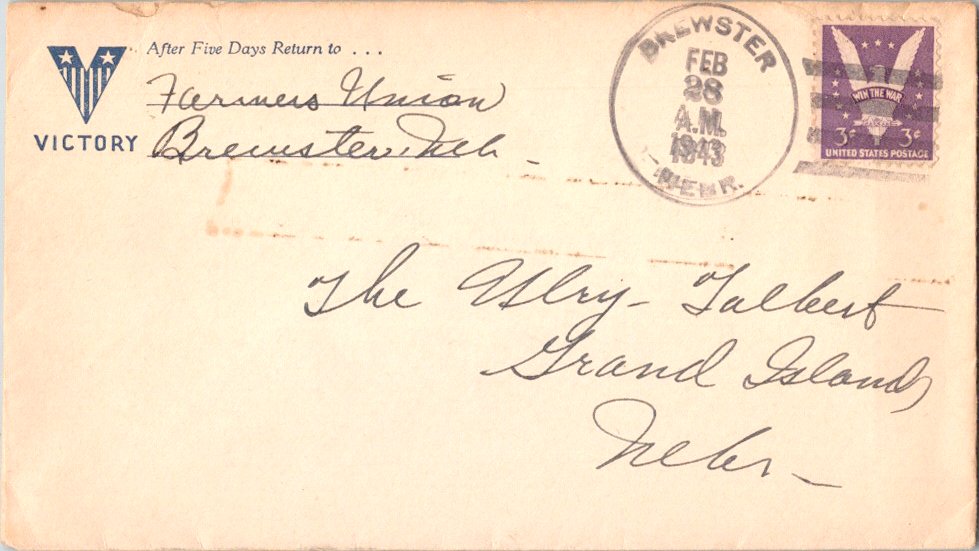 After Five Days Return to . . .
VICTORY
Farmers Union
Brewster, Neb.
BREWSTER
FEB
28
A.M.
1943
NEBR.
WIN THE WAR
3¢ 3¢
UNITED STATES POSTAGE
The Ulry-Talbert
Grand Island,
Nebr-